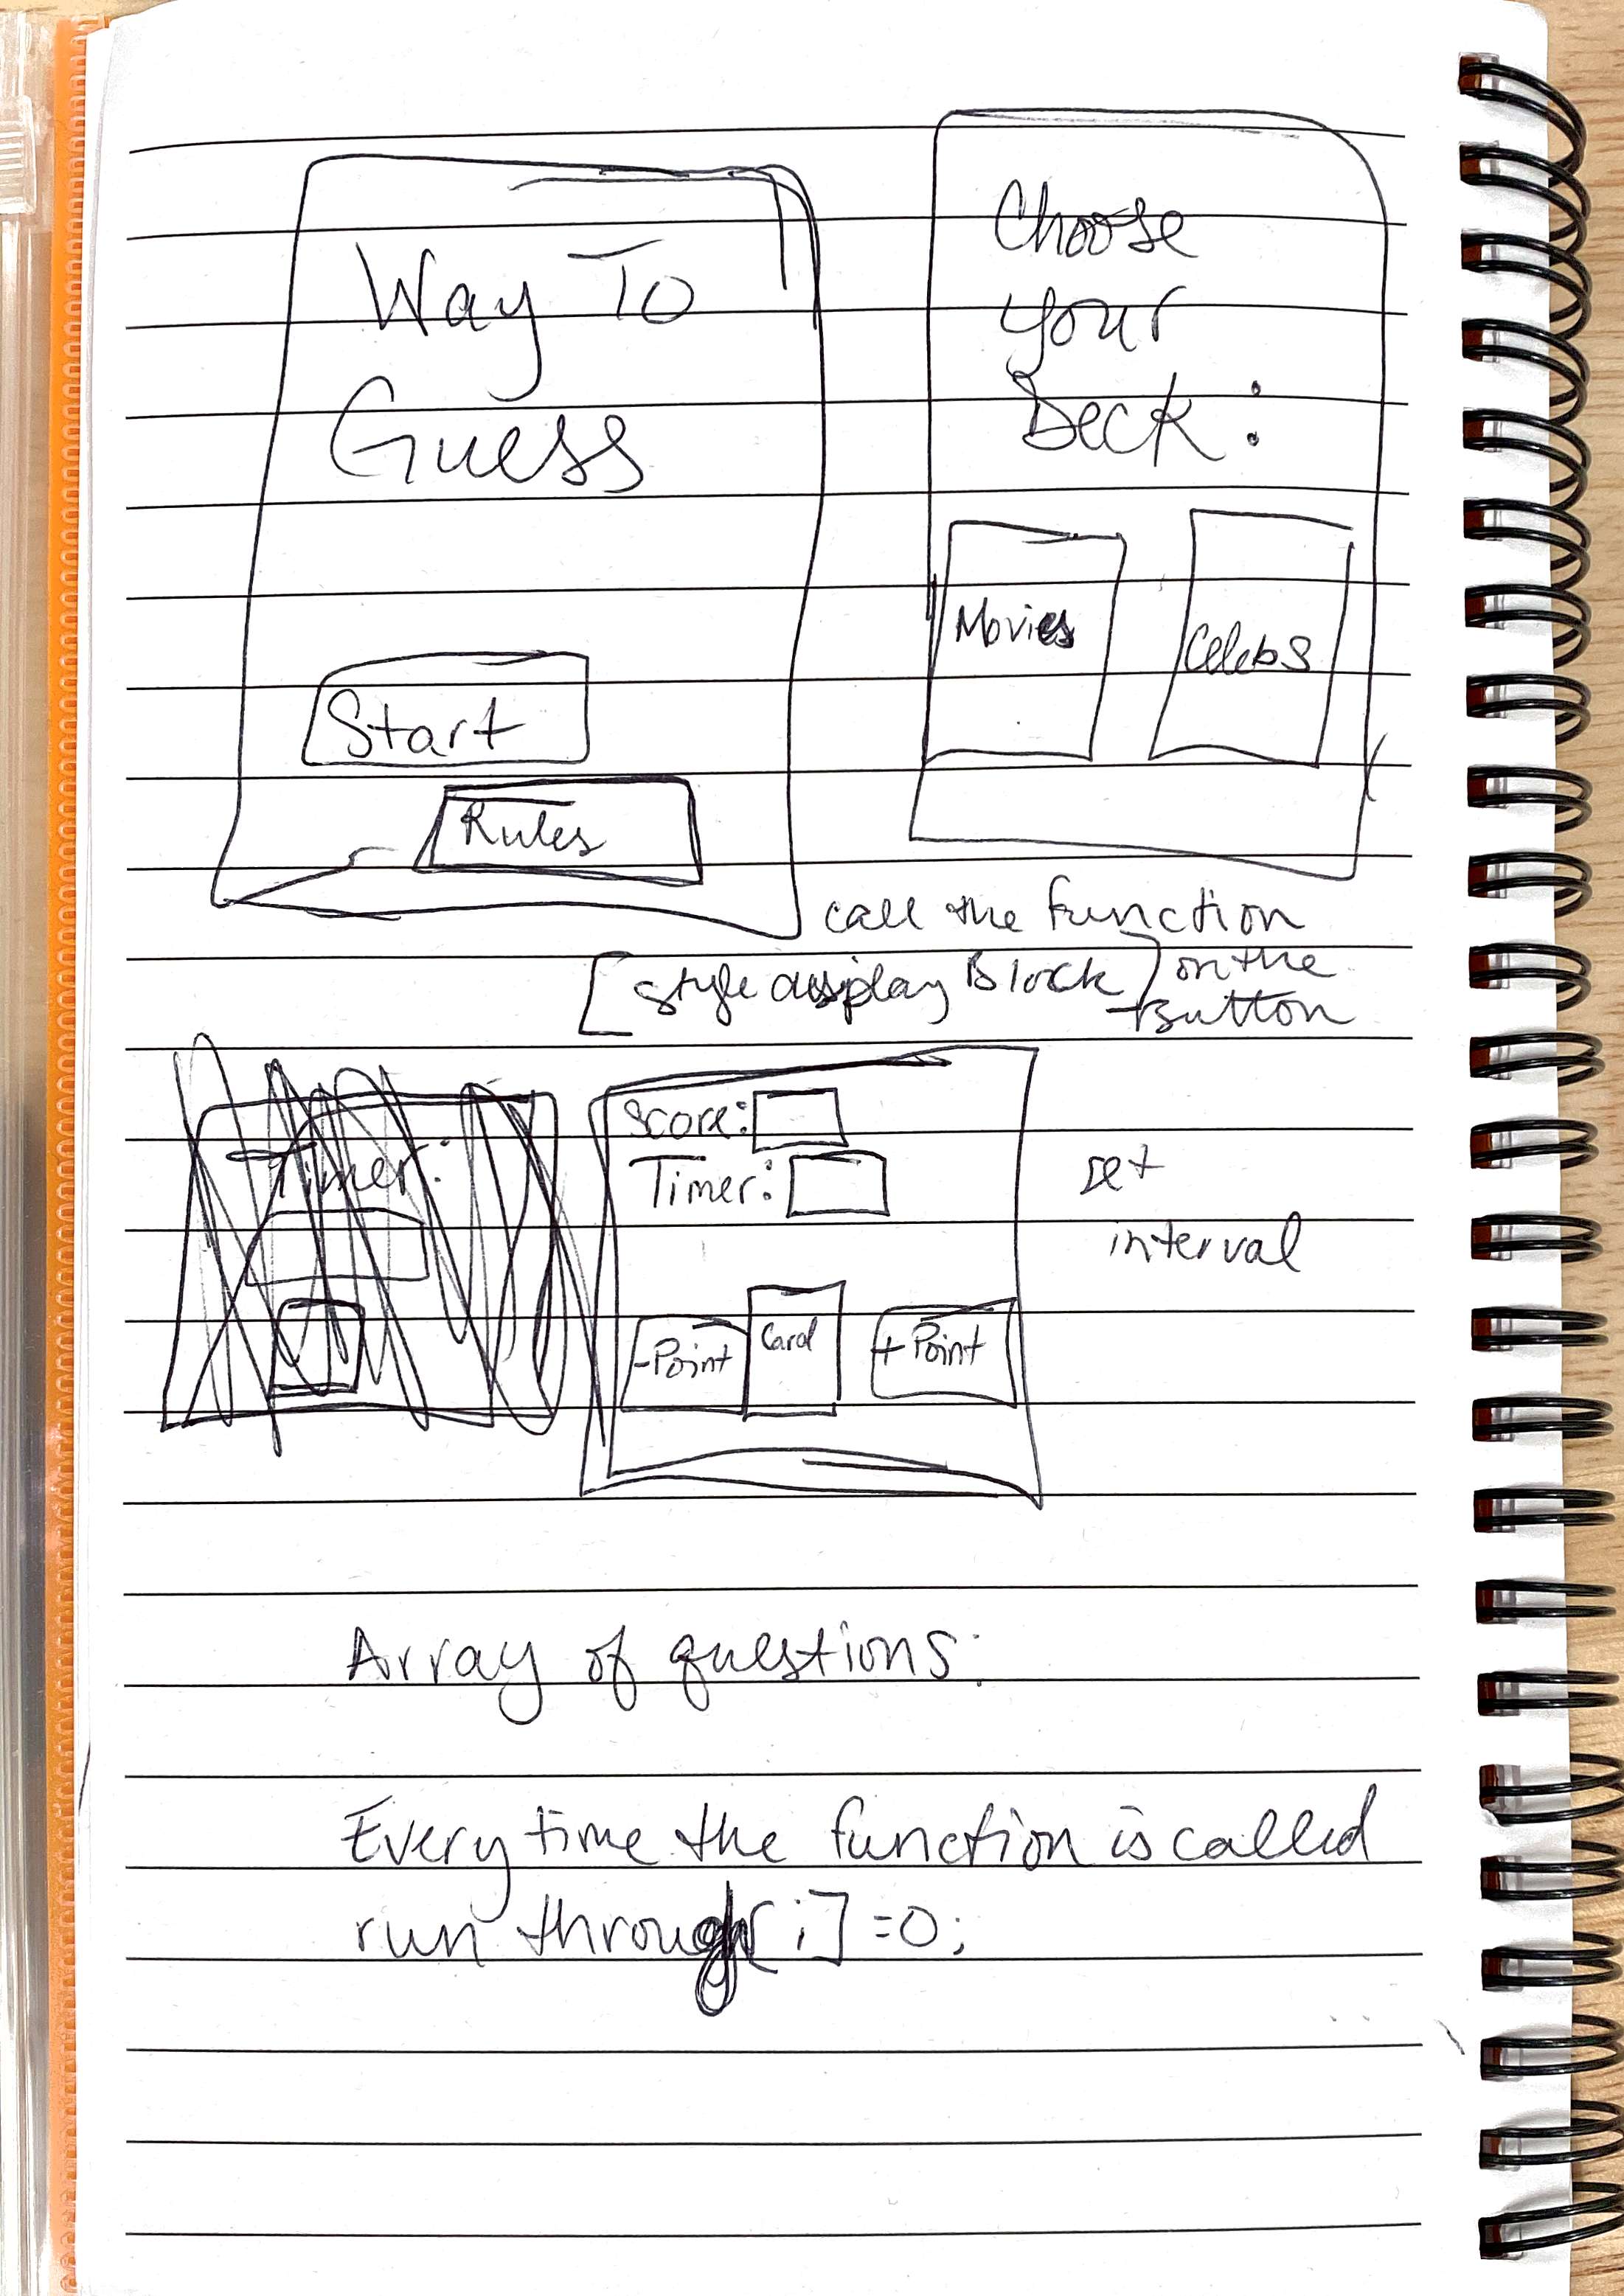 Way To
Guess
Start
Rules
Choose
your
Deck:
Movies
Celebs
call the function
[style display Block] on the
Button
Timer:
Score:
Timer:
-Point
Card
+Point
set
interval
Array of questions:
Every time the function is called
run through[i]=0;